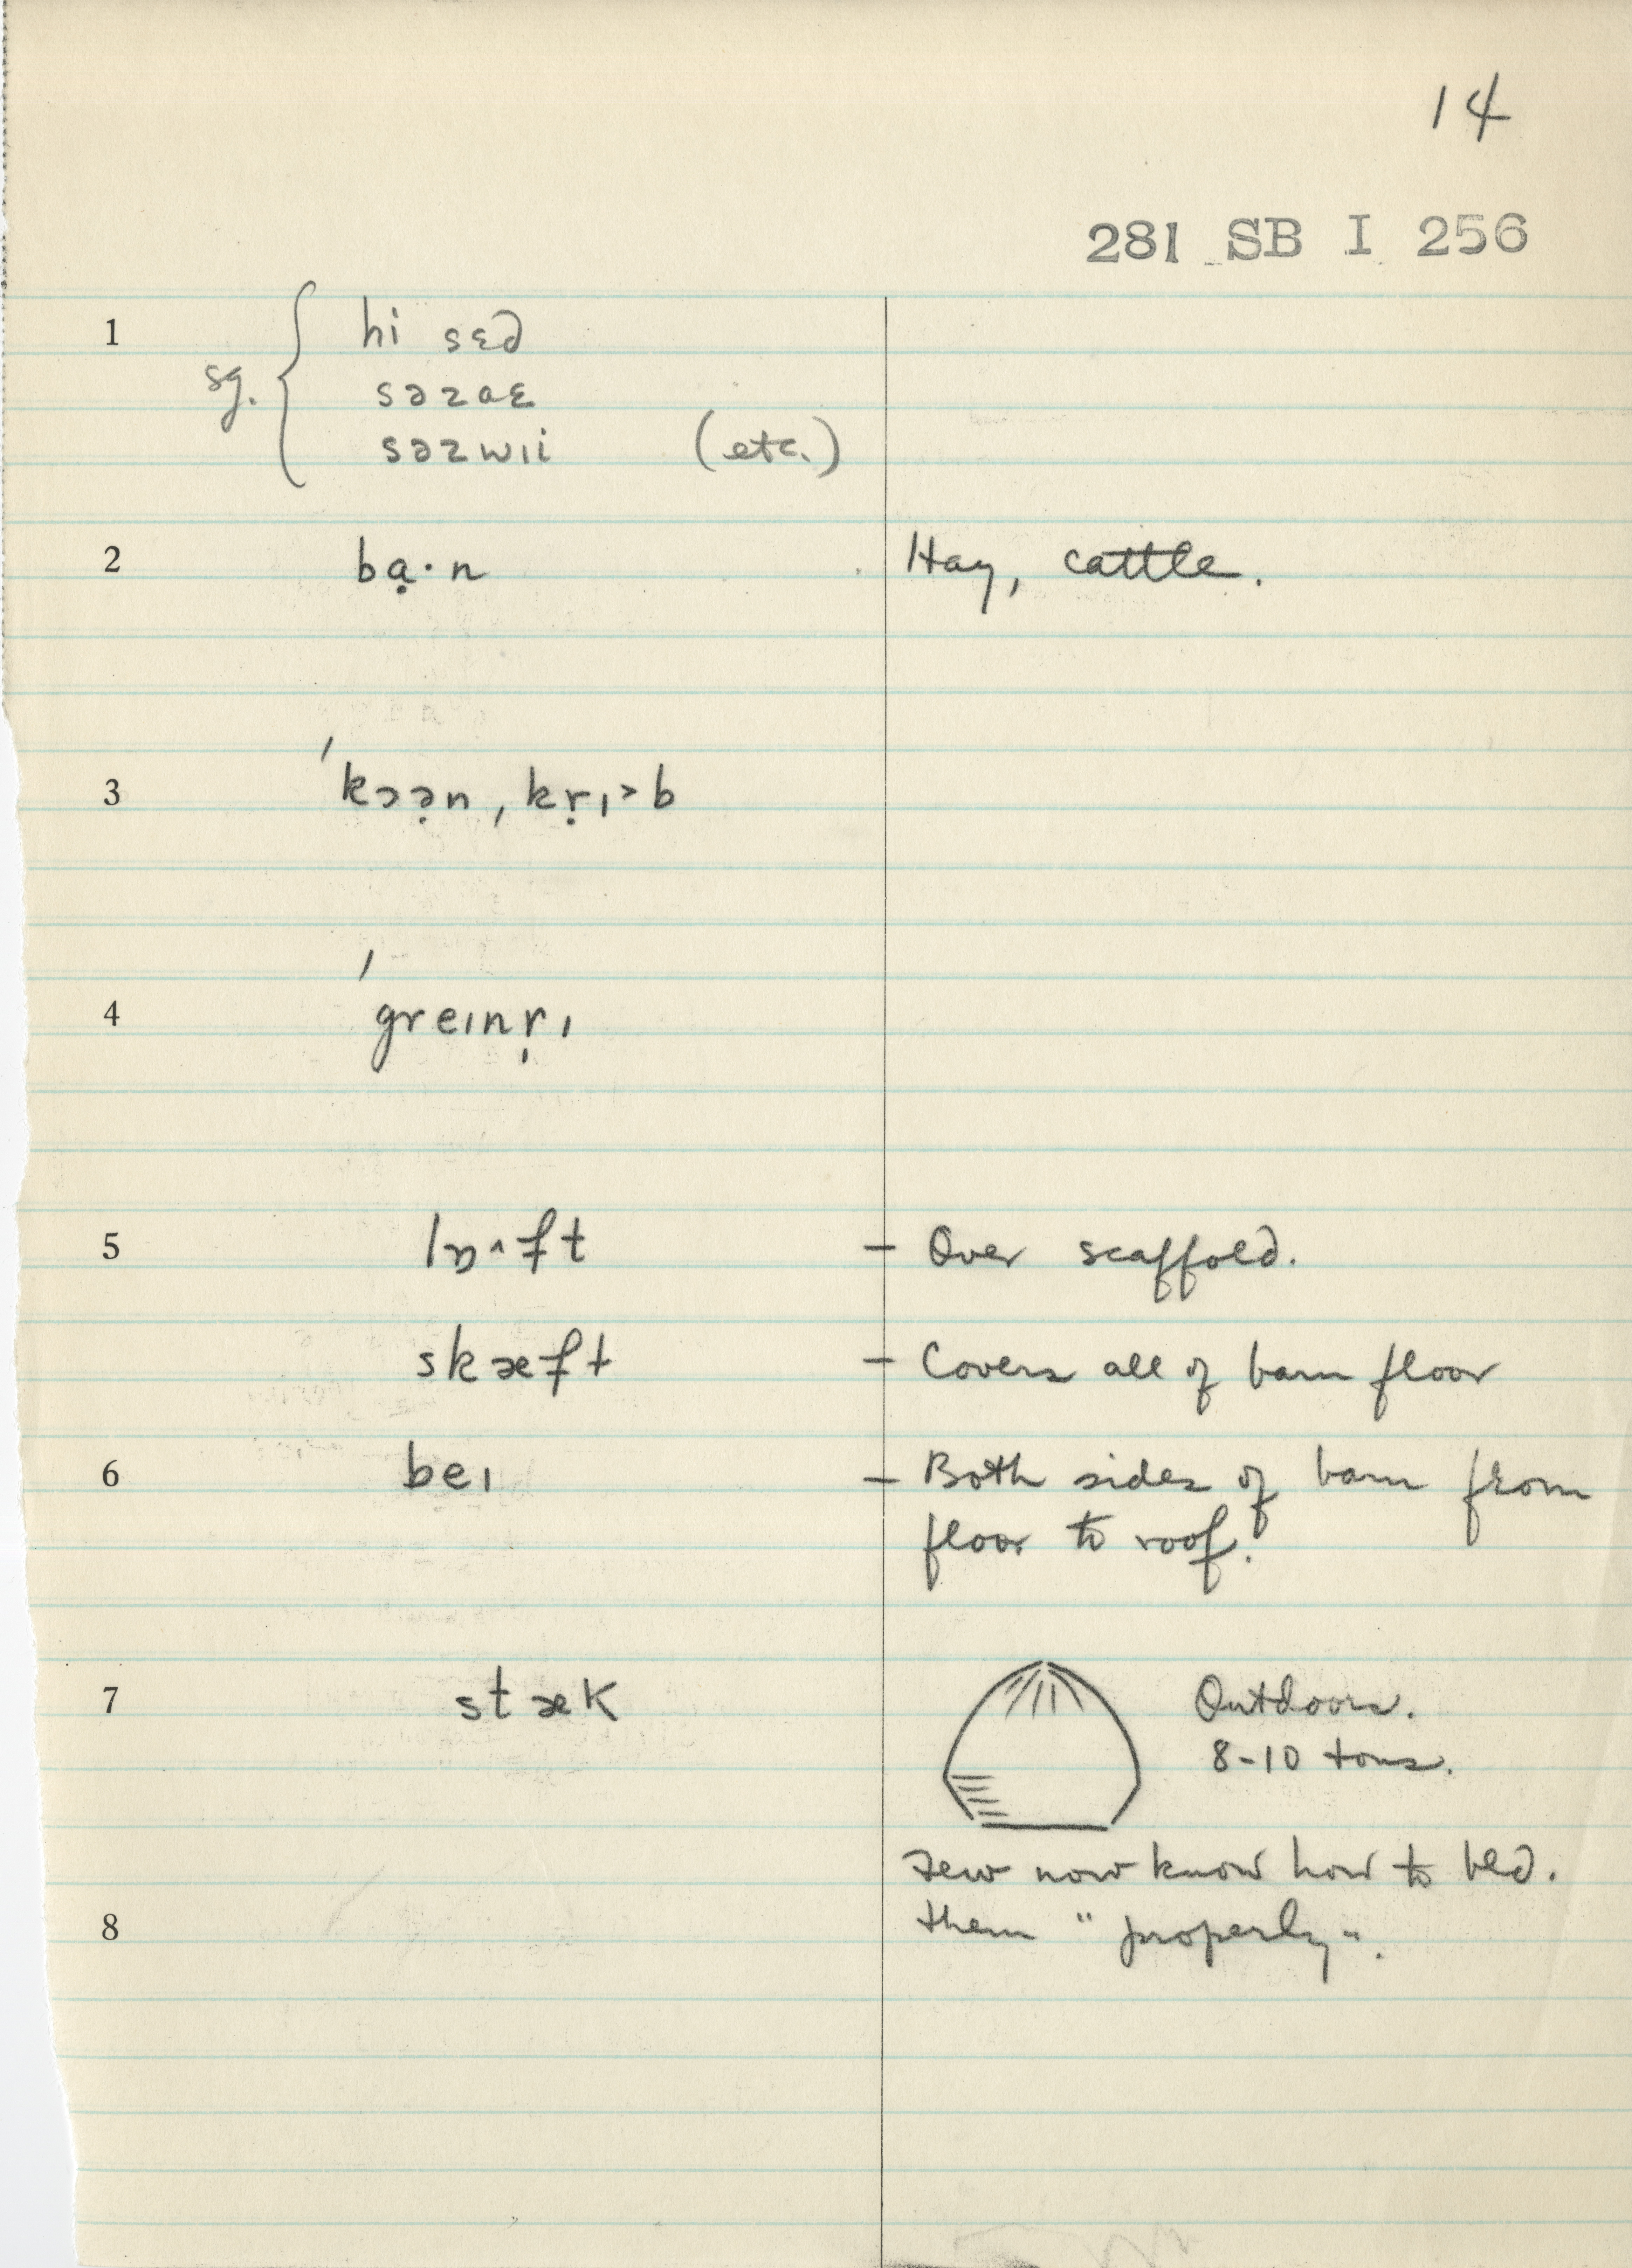 14
281 SB I 256
1 sg. { hi sɛd
səzaɛ
səzwɪi (etc.)
2 bạ·n Hay, cattle.
3 ˈkɔə̣n, kṛɪ˃b
4 ˈgreɪnṛɪ
5 lɒ˄ft – Over scaffold.
skæft – Covers all of barn floor
6 beɪ – Both sides of barn from
floor to roof.
7 stæk Outdoors.
8-10 tons.
Few now know how to bld.
8 them "properly".